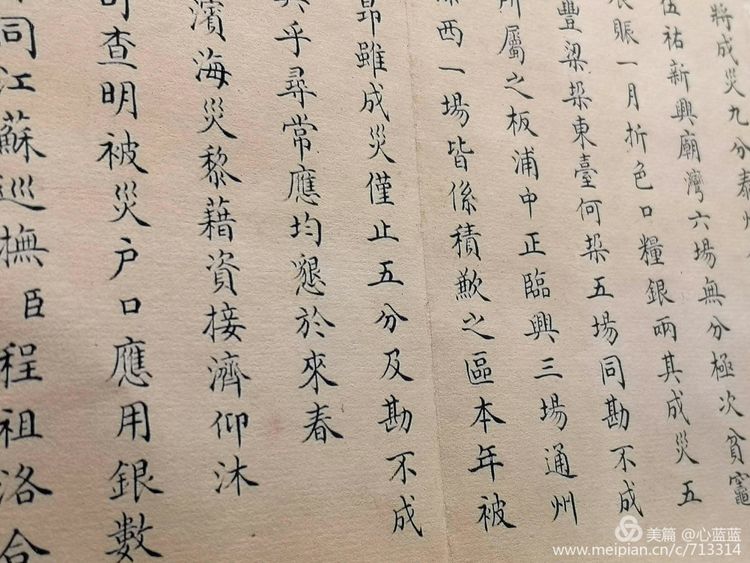 將成災九分泰州
伍祐新興廟灣六場無分極次貧竈
賑一月折色口糧銀兩其成災五
豐梁垛東臺何垛五場同勘不成
所屬之板浦中正臨興三場通州
西一場皆係積歉之區本年被
昂雖成災僅止五分及勘不成
乎尋常應均懇於來春
濱海災黎藉資接濟仰沐
查明被災戶口應用銀數
同江蘇巡撫臣程祖洛合
美篇 @心蓝蓝
www.meipian.cn/c/713314